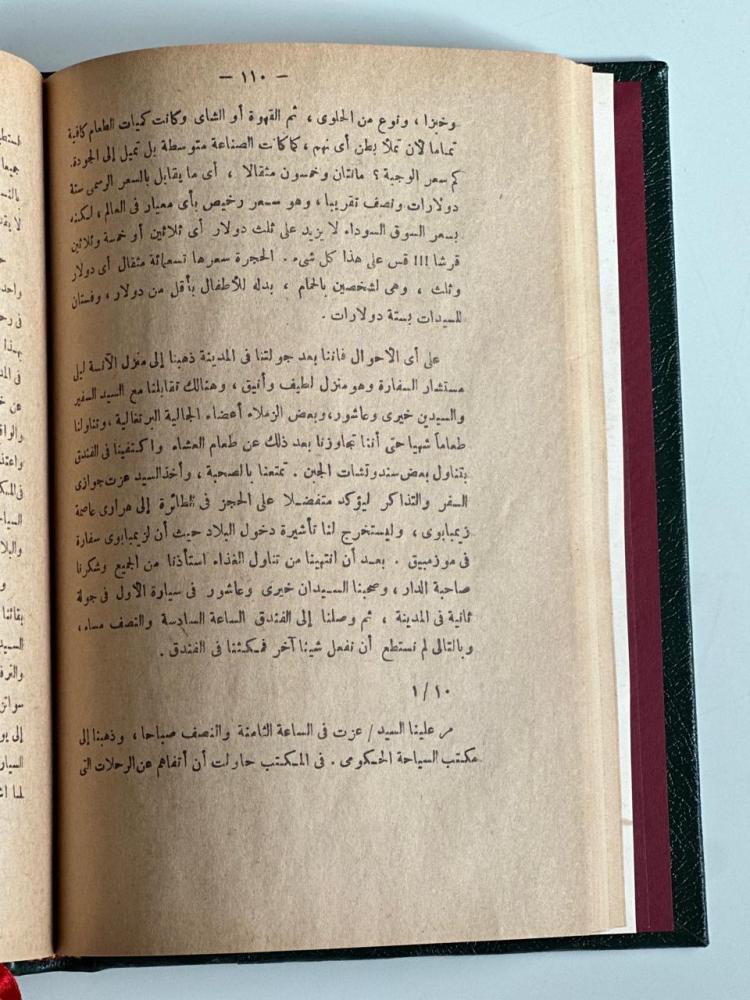 — ١١٠ —
وخبزا ، ونوع من الحلوى ، ثم القهوة أو الشاى وكانت كميات الطعام كافية
تماما لأن تملأ بطن أى نهم ، كما كانت الصناعة متوسطة بل تميل إلى الجودة.
كم سعر الوجبة ؟ مائتان وخمسون مثقالا ، أى ما يقابل بالسعر الرسمى ستة
دولارات ونصف تقريبا ، وهو سعر رخيص بأى معيار فى العالم ، لكنه
بسعر السوق السوداء لا يزيد على ثلث دولار أى ثلاثين أو خمسة وثلاثين
قرشا !!! قس على هذا كل شىء . الحجرة سعرها تسعمائة مثقال أى دولار
وثلث ، وهى لشخصين بالحمام ، بدله للأطفال بأقل من دولار ، وفستان
للسيدات بستة دولارات .
على أى الأحوال فاننا بعد جولتنا فى المدينة ذهبنا إلى منزل الآنسة ليل
مستشار السفارة وهو منزل لطيف وأنيق ، وهنالك تقابلنا مع السيد السفير
والسيدين خيرى وعاشور، وبعض الزملاء أعضاء الجالية البرتغالية ، وتناولنا
طعاماً شهيا حتى أننا تجاوزنا بعد ذلك عن طعام العشاء واكتفينا فى الفندق
بتناول بعض سندوتشات الجبن . تمتعنا بالصحبة ، وأخذ السيد عزت جوازى
السفر والتذاكر ليؤكد متفضلا على الحجز فى الطائرة إلى هرارى عاصمة
زيمبابوى ، وليستخرج لنا تأشيرة دخول البلاد حيث أن لزيمبابوى سفارة
فى موزمبيق . بعد أن انتهينا من تناول الغذاء استأذنا من الجميع وشكرنا
صاحبة الدار ، وصحبنا السيدان خيرى وعاشور فى سيارة الأول فى جولة
ثانية فى المدينة ، ثم وصلنا إلى الفندق الساعة السادسة والنصف مساء ،
وبالتالى لم نستطع أن نفعل شيئا آخر فمكثنا فى الفندق .
١٠ / ١
مر علينا السيد / عزت فى الساعة الثامنة والنصف صباحا ، وذهبنا إلى
مكتب السياحة الحكومى . فى المكتب حاولت أن أتفاهم عن الرحلات التى